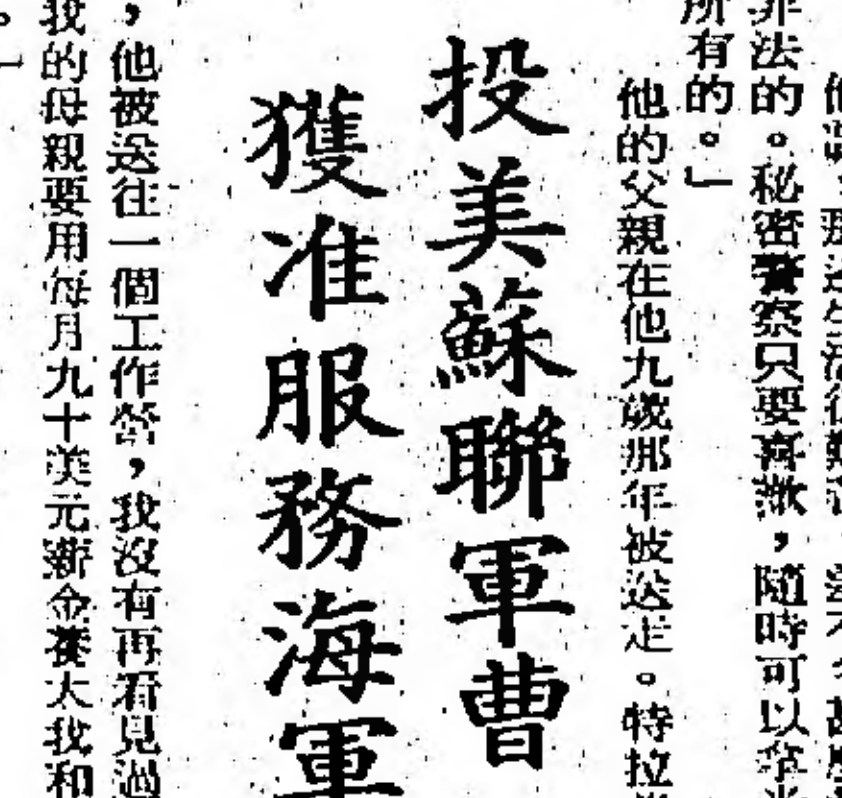 非法的。秘密警察只要喜歡，隨時可以拿
所有的。」
他的父親在他九歲那年被送走。特拉
投美蘇聯軍曹
獲准服務海軍
，他被送往一個工作營，我沒有再看見過
我的母親要用每月九十美元薪金養大我和
。」